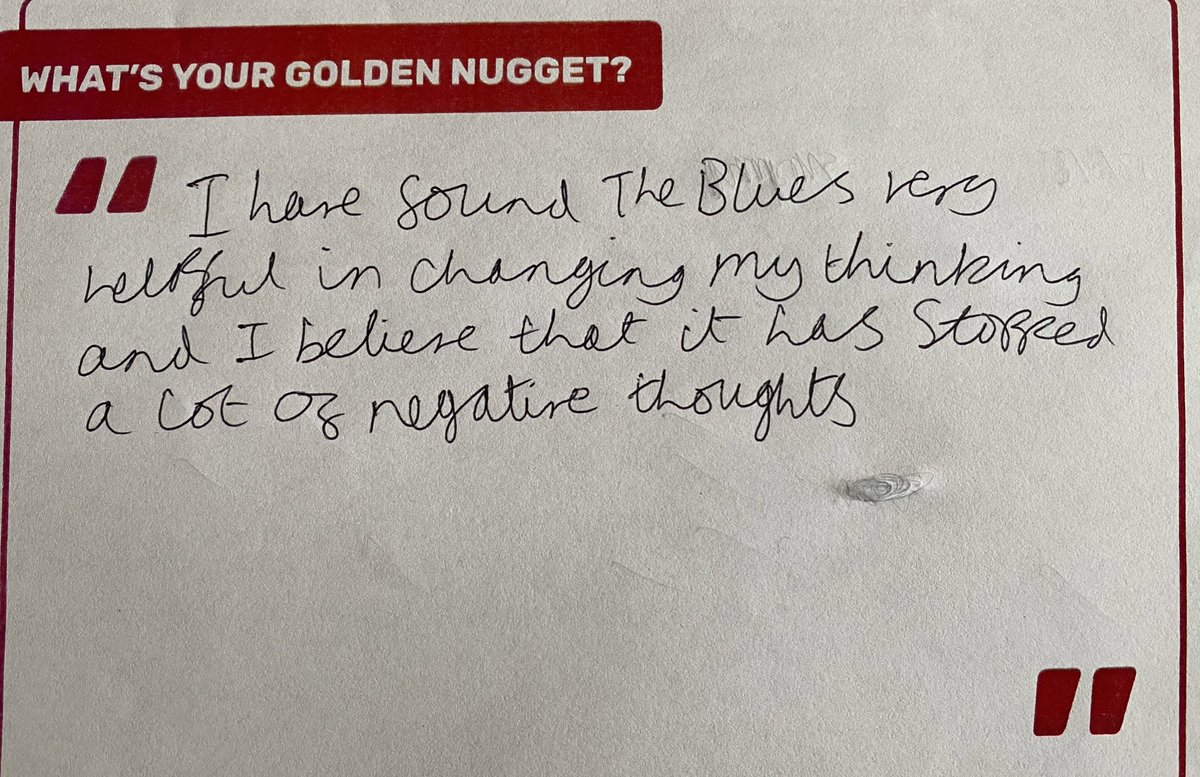 WHAT'S YOUR GOLDEN NUGGET?
I have found The Blues very
helpful in changing my thinking
and I believe that it has stopped
a lot of negative thoughts